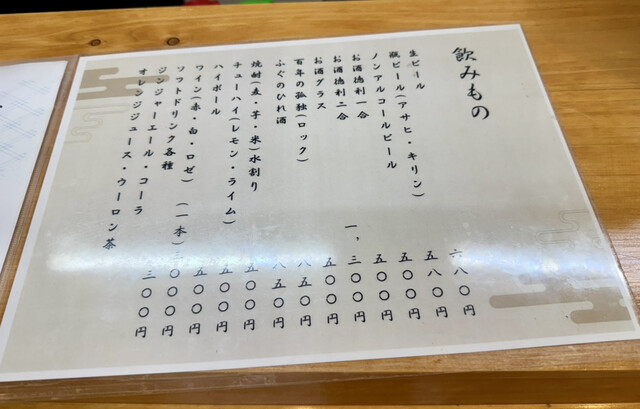 飲みもの
生ビール 六八〇円
瓶ビール(アサヒ・キリン) 五八〇円
ノンアルコールビール 五〇〇円
お酒徳利一合 五〇〇円
お酒徳利二合 一,三〇〇円
お酒グラス 五〇〇円
百年の孤独(ロック) 八五〇円
ふぐのひれ酒 八五〇円
焼酎(麦・芋・米)水割り 五〇〇円
チューハイ(レモン・ライム) 五〇〇円
ハイボール 五〇〇円
ワイン(赤・白・ロゼ) (一本)三〇〇〇円
ソフトドリンク各種 三〇〇円
ジンジャーエール・コーラ
オレンジジュース・ウーロン茶